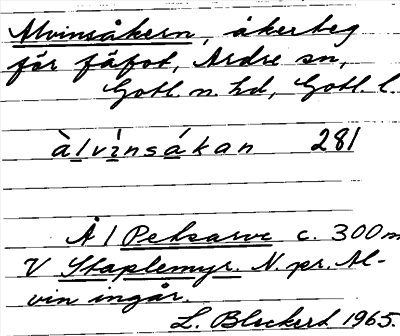 Alvinsåkern, åkerteg
för fäfot, Ardre sn,
Gotl. n. hd, Gotl. l.
àlvìnsákan 281
Å / Petsarve c. 300m
V Staplemyr. N. pr. Al-
vin ingår.
L. Bleckert 1965.